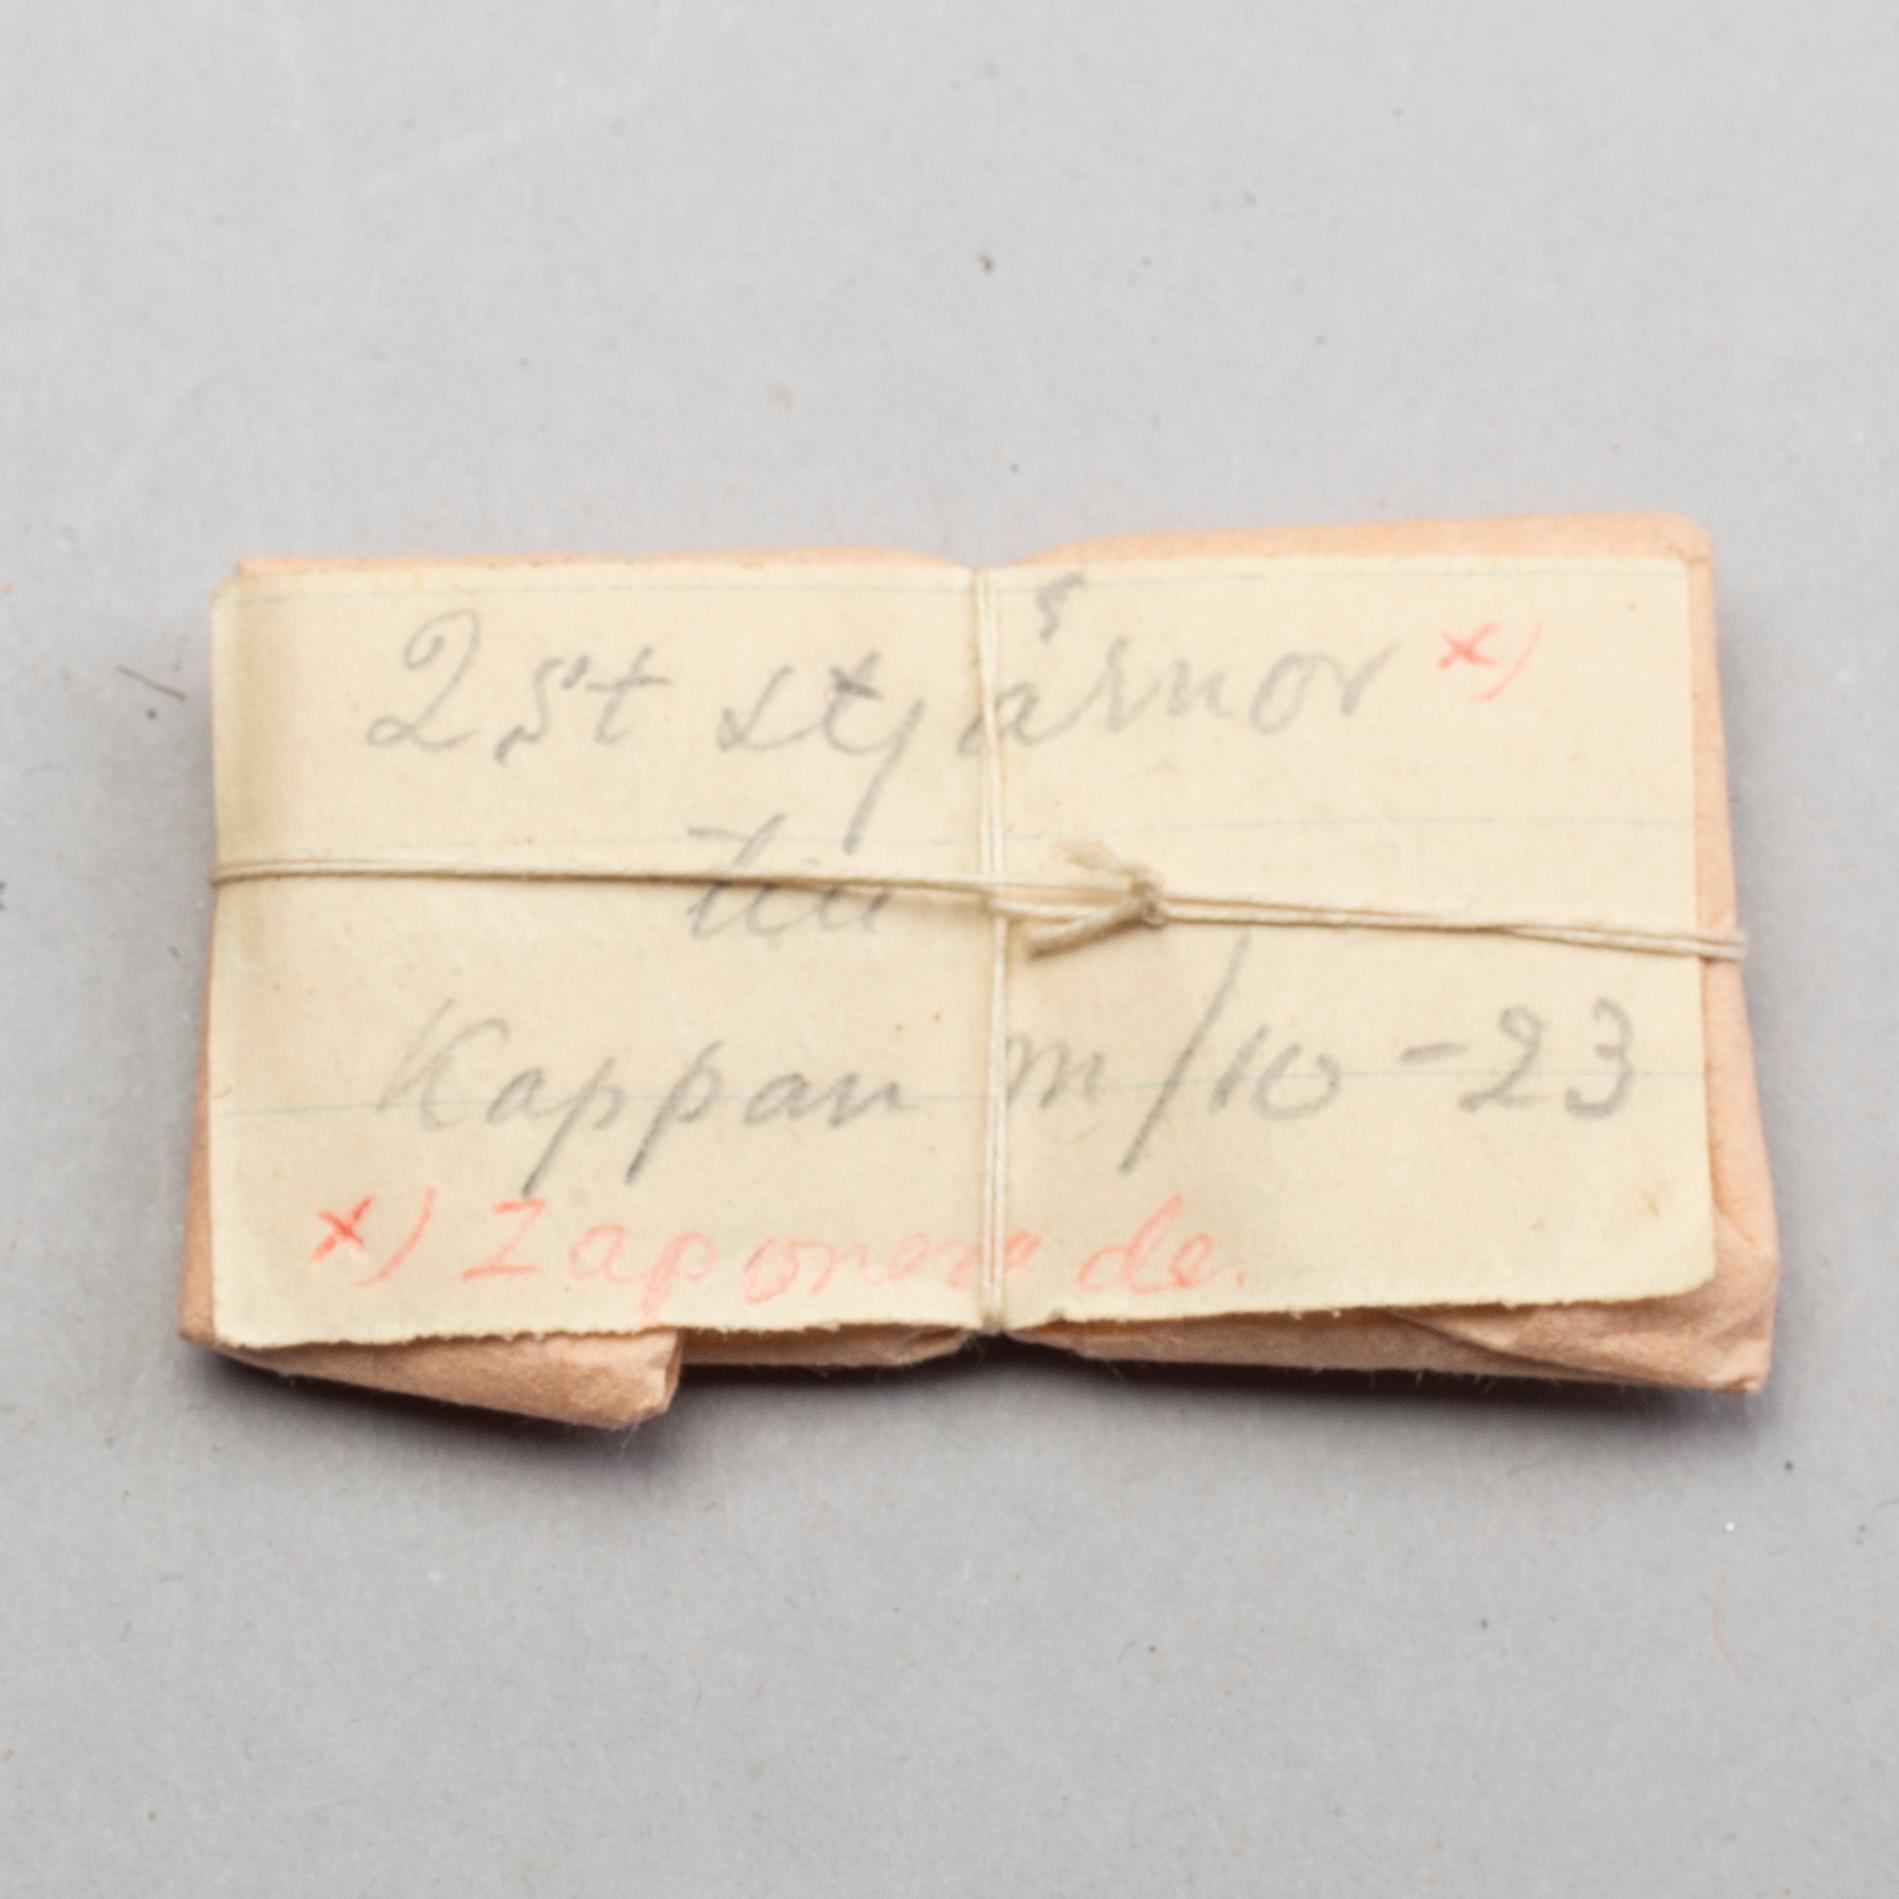 2 st stjärnor x)
till
Kappan m/10-23
x) Zaponerade.